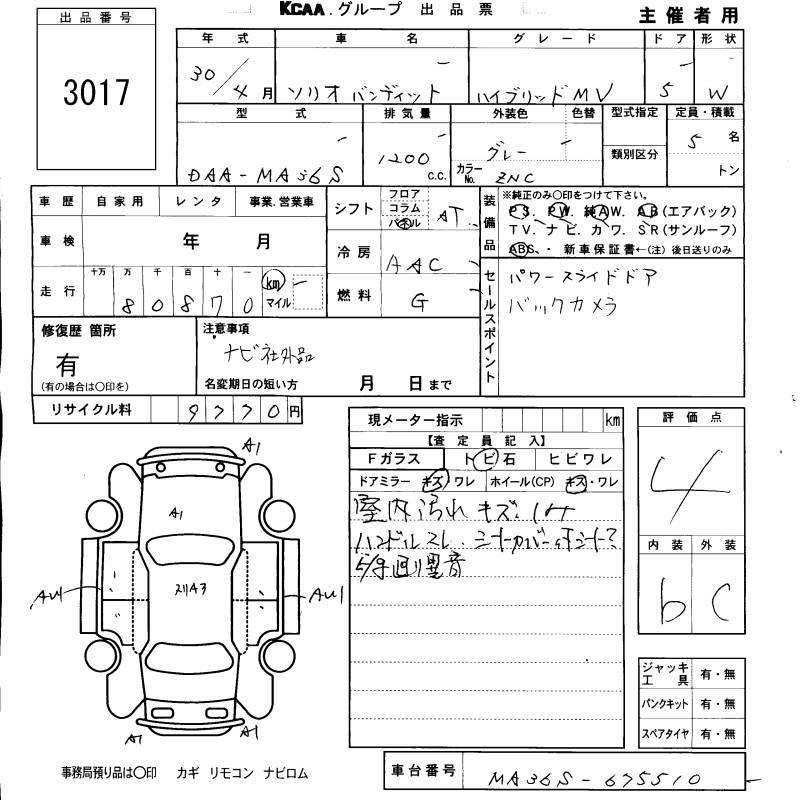 KCAA.グループ 出品票
主催者用
出品番号
3017
年式 車名 グレード ドア 形状
30/4月 ソリオ バンディット ハイブリッドMV 5 W
型式 排気量 外装色 色替 型式指定 定員・積載
類別区分
DAA-MA36S 1200 c.c. グレー 5名
カラーNo. ZNC トン
車歴 自家用 レンタ 事業.営業車
車検 年 月
走行 十万 万 千 百 十 一 km マイル
80870
シフト フロア コラム パネル AT
冷房 AAC
燃料 G
装備品
※純正のみ○印をつけて下さい。
PS. PW. 純AW. AB(エアバック)
TV. ナビ. カワ. SR(サンルーフ)
ABS. ・ 新車保証書←(注)後日送りのみ
セールスポイント
パワースライドドア
バックカメラ
修復歴 箇所
有
(有の場合は○印を)
注意事項
ナビ社外品
名変期日の短い方 月 日まで
リサイクル料 9770円
現メーター指示 km
【査定員記入】
Fガラス トビ石 ヒビワレ
ドアミラー キズ・ワレ ホイール(CP) キズ・ワレ
室内汚れ キズ.
ハンドルスレ.
異音
評価点
4
内装 外装
b C
ジャッキ工具 有・無
パンクキット 有・無
スペアタイヤ 有・無
A1
A1
スリA3
AU1
A1
A1
事務局預り品は○印 カギ リモコン ナビロム
車台番号 MA36S-675510